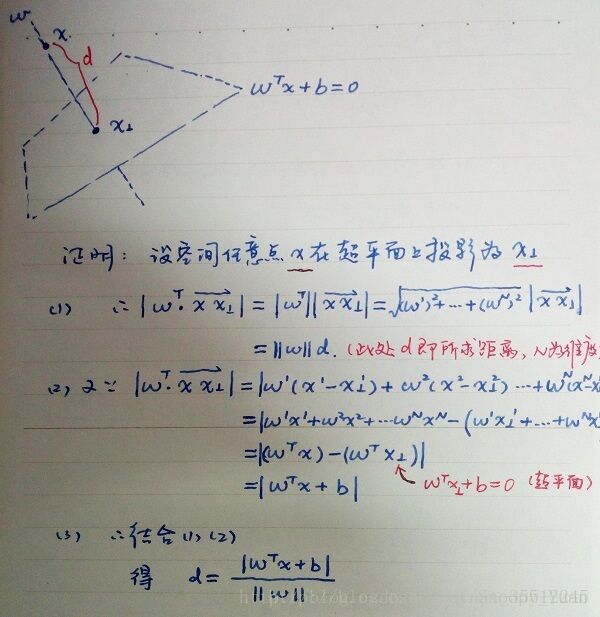 w x
d
x⊥
wᵀx+b=0
证明: 设空间任意点 x 在超平面上投影为 x⊥
(1) ∴ |wᵀ· xx⊥| = |wᵀ||xx⊥| = √((w¹)²+…+(wᴺ)²) |xx⊥|
= ||w|| d. (此处 d 即所求距离, N为维度
(2) 又∵ |wᵀ· xx⊥| = |w¹(x¹-x⊥¹) + w²(x²-x⊥²) …+wᴺ(xᴺ-x
= |w¹x¹+w²x²+…wᴺxᴺ-(w¹x⊥¹+…+wᴺx
= |(wᵀx)-(wᵀx⊥)|
= |wᵀx+b| wᵀx⊥+b=0 (超平面)
(3) ∴结合(1),(2)
得 d= |wᵀx+b| / ||w||